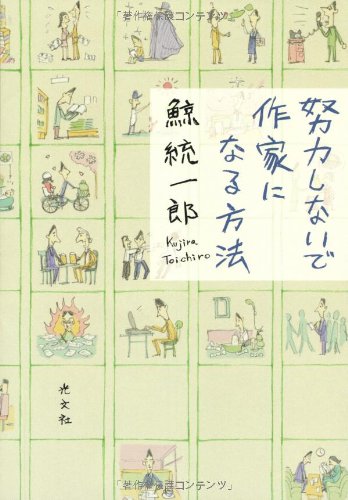 「著作権保護コンテンツ」
努力しないで
作家に
なる方法
鯨統一郎
Kujira
Toichiro
光文社
「著作権保護コンテンツ」